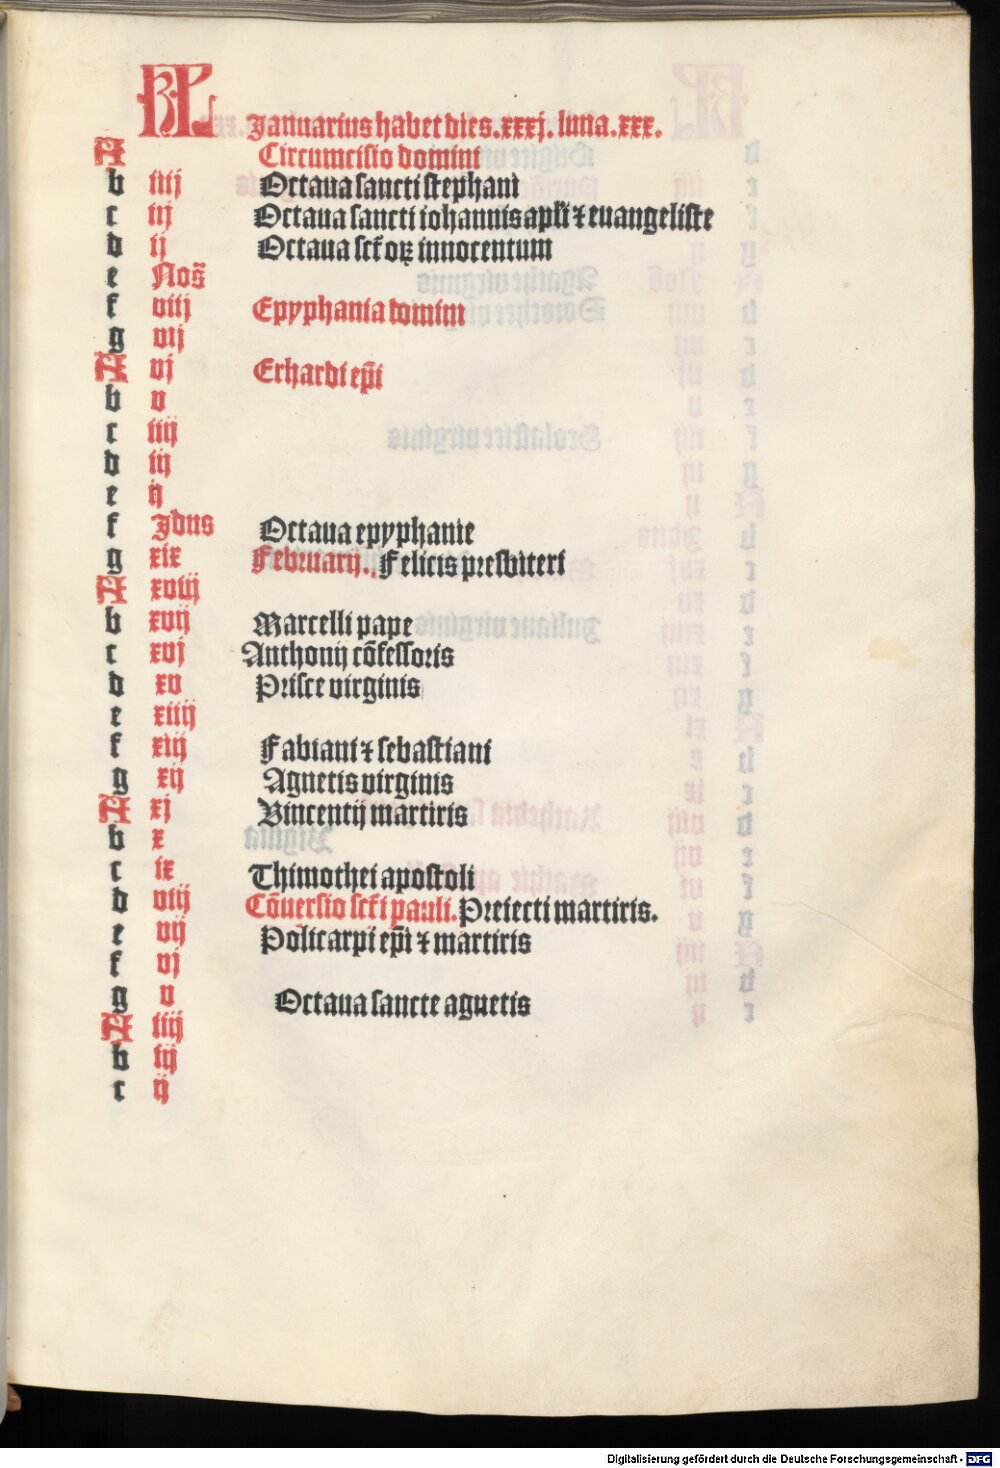 KL Januarius habet dies.xxxj. luna.xxx.
A Circumcisio domini
b iiij Octaua sancti stephani
c iij Octaua sancti iohannis apłi ⁊ euangeliste
d ij Octaua sct̄oꝝ innocentum
e Nos̄
f viij Epyphania domini
g vij
A vj Erhardi ep̄i
b v
c iiij
d iij
e ij
f Jdus Octaua epyphanie
g xix Februarij. Felicis presbiteri
A xviij
b xvij Marcelli pape
c xvj Anthonij cōfessoris
d xv Prisce virginis
e xiiij
f xiij Fabiani ⁊ sebastiani
g xij Agnetis virginis
A xj Vincentij martiris
b x
c ix Thimothei apostoli
d viij Cōuersio sct̄i pauli. Preiecti martiris.
e vij Policarpi ep̄i ⁊ martiris
f vj
g v Octaua sancte agnetis
A iiij
b iij
c ij
Digitalisierung gefördert durch die Deutsche Forschungsgemeinschaft - DFG